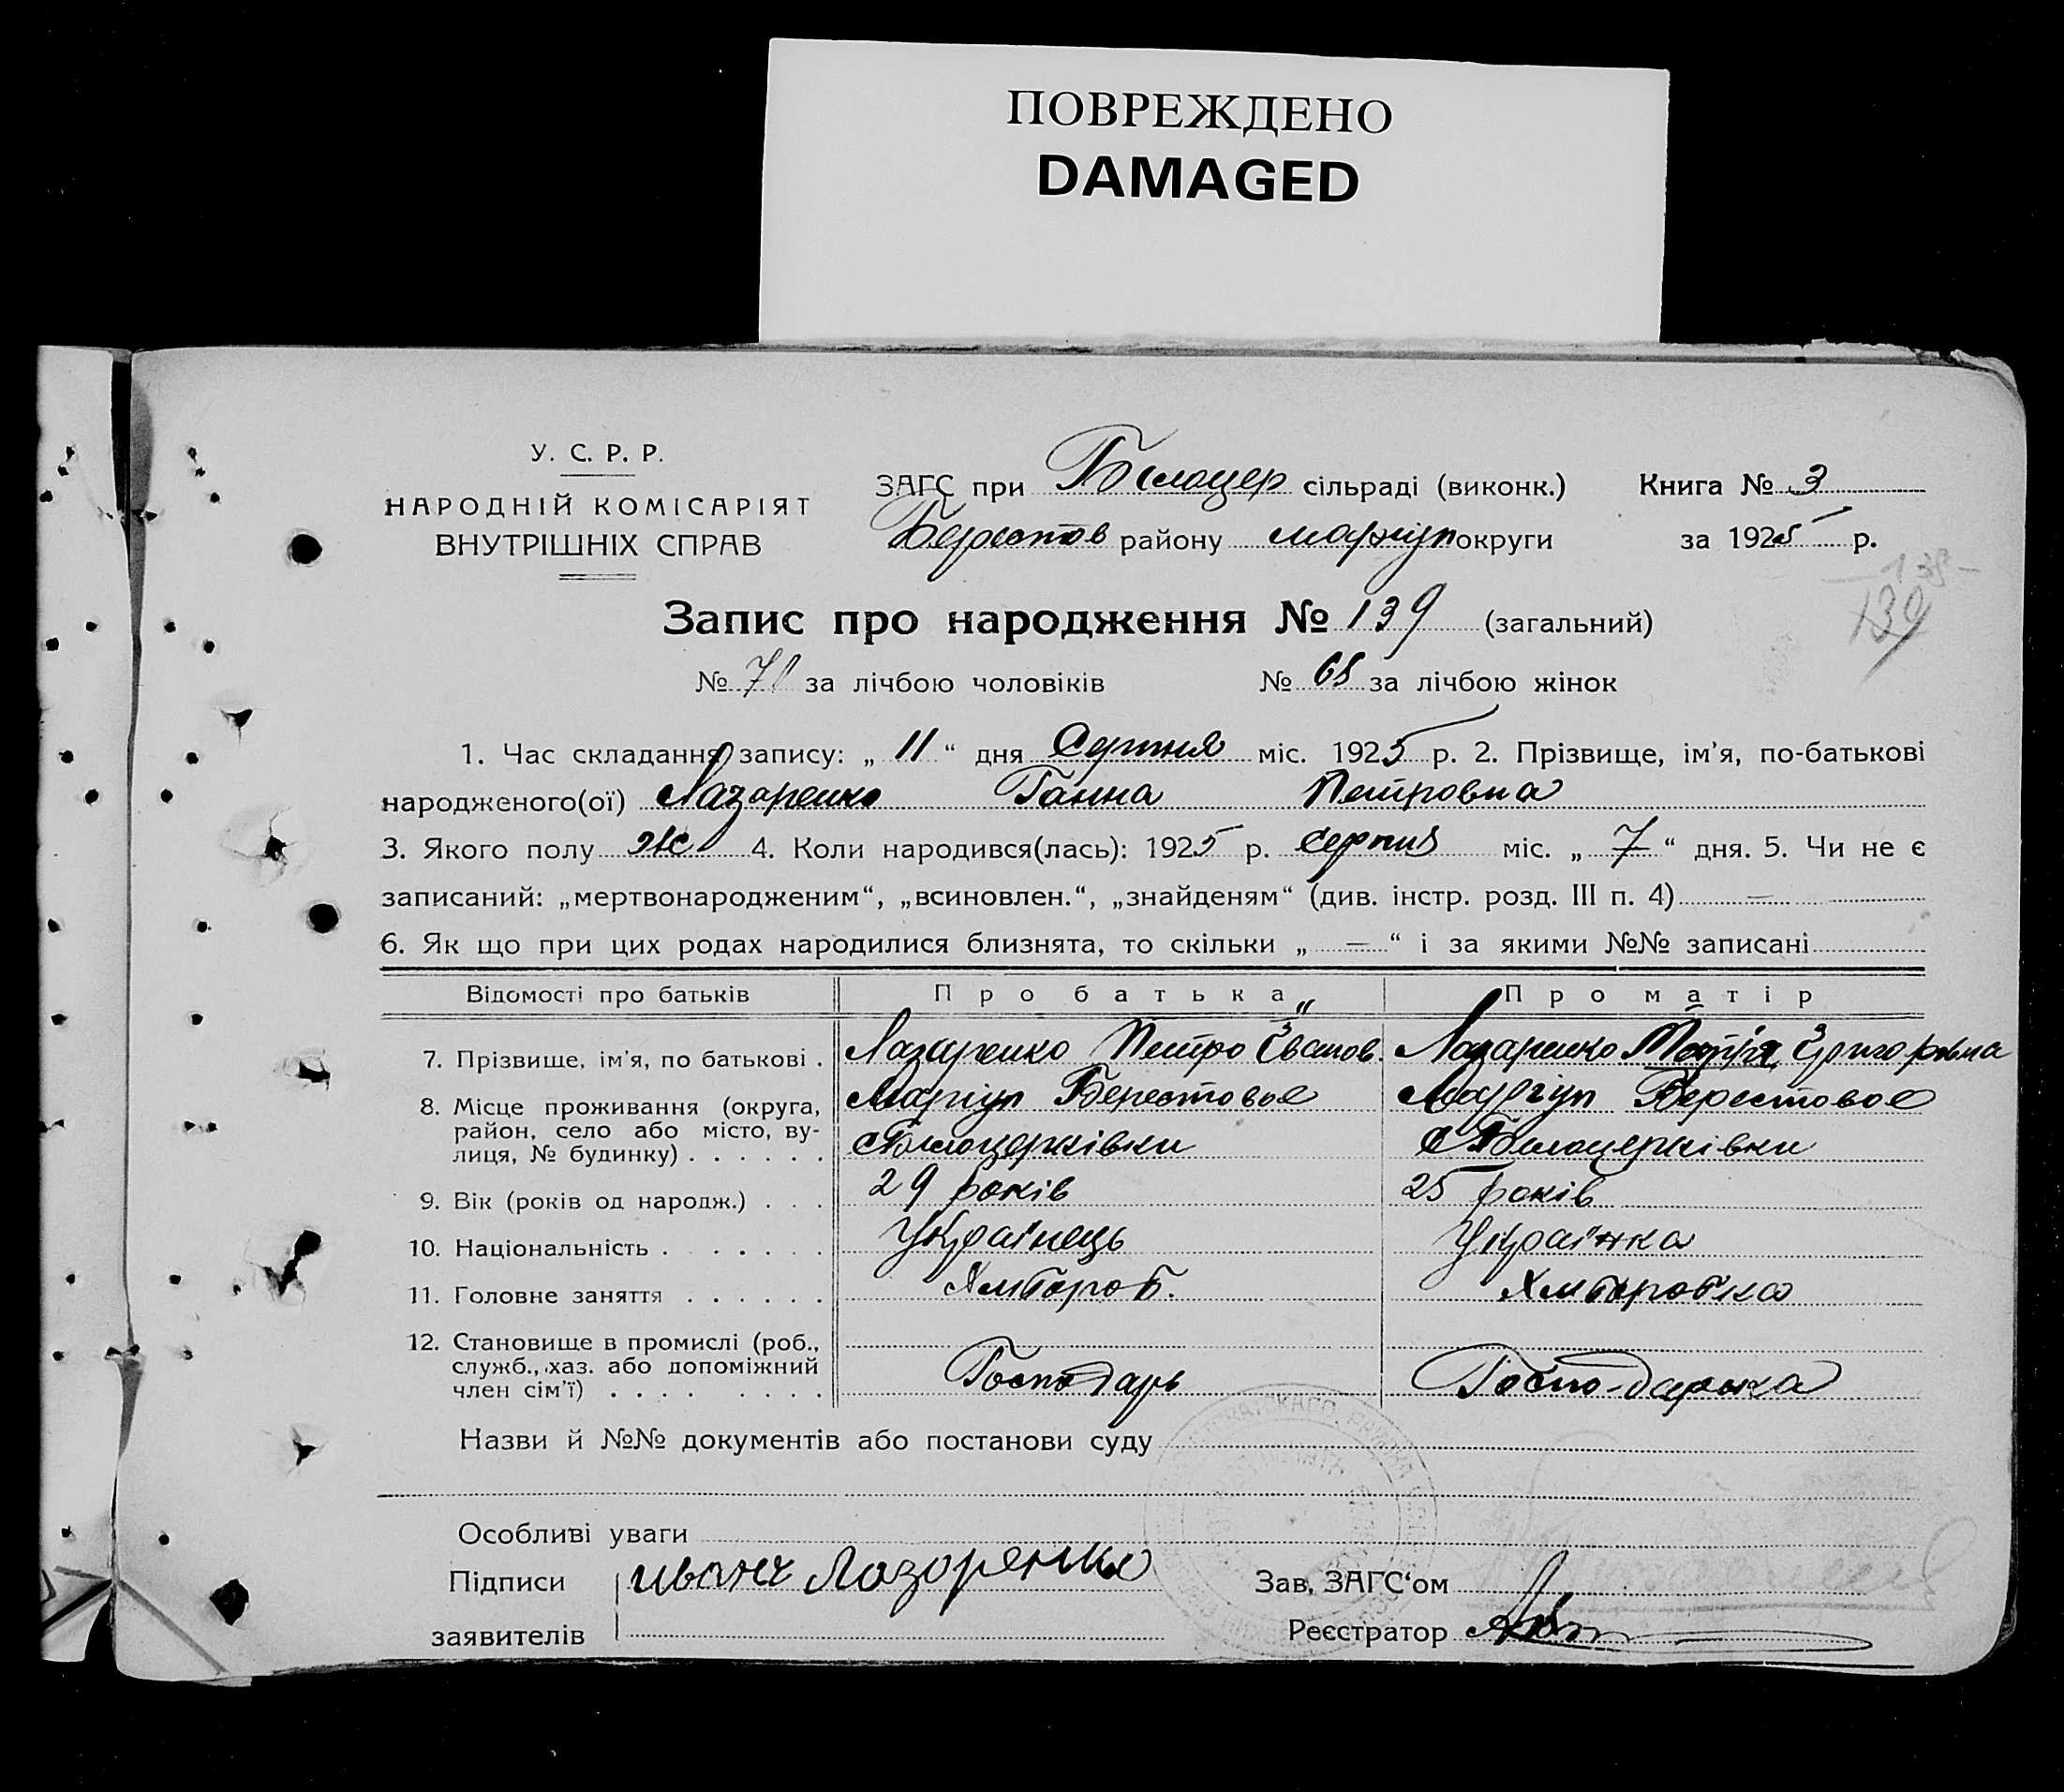 ПОВРЕЖДЕНО
DAMAGED
У. С. Р. Р.
НАРОДНІЙ КОМІСАРІЯТ
ВНУТРІШНІХ СПРАВ
ЗАГС при Білоцер сільраді (виконк.) Книга № 3
Берестов району маріуп округи за 1925 р.
139
139
Запис про народження № 139 (загальний)
№ 71 за лічбою чоловіків № 68 за лічбою жінок
1. Час складання запису: „ 11 “ дня Серпня міс. 1925 р. 2. Прізвище, ім’я, по-батькові
народженого(ої) Лазаренко Ганна Петровна
3. Якого полу ж 4. Коли народився(лась): 1925 р. серпня міс. „ 7 “ дня. 5. Чи не є
записаний: „мертвонародженим“, „всиновлен.“, „знайденям“ (див. інстр. розд. III п. 4) —
6. Як що при цих родах народилися близнята, то скільки „ — “ і за якими №№ записані
Відомості про батьків Про батька Про матір
7. Прізвище, ім’я, по батькові . Лазаренко Петро Іванов. Лазаренко Григоровна
8. Місце проживання (округа, Маріуп Берестовое Маріуп Берестовое
район, село або місто, ву-
лиця, № будинку) . . . . . . с Білоцерківки с Білоцерківки
9. Вік (років од народж.) . . . 29 років 25 років
10. Національність . . . . . . . Українець Українка
11. Головне заняття . . . . . . Хлібороб. Хліборобка
12. Становище в промислі (роб.,
служб., хаз. або допоміжний
член сім’ї) . . . . . . . . Господарь Госпо-дарька
Назви й №№ документів або постанови суду
Особливі уваги
Підписи иванъ Лазоренко Зав. ЗАГС‘ом
заявителів Реєстратор